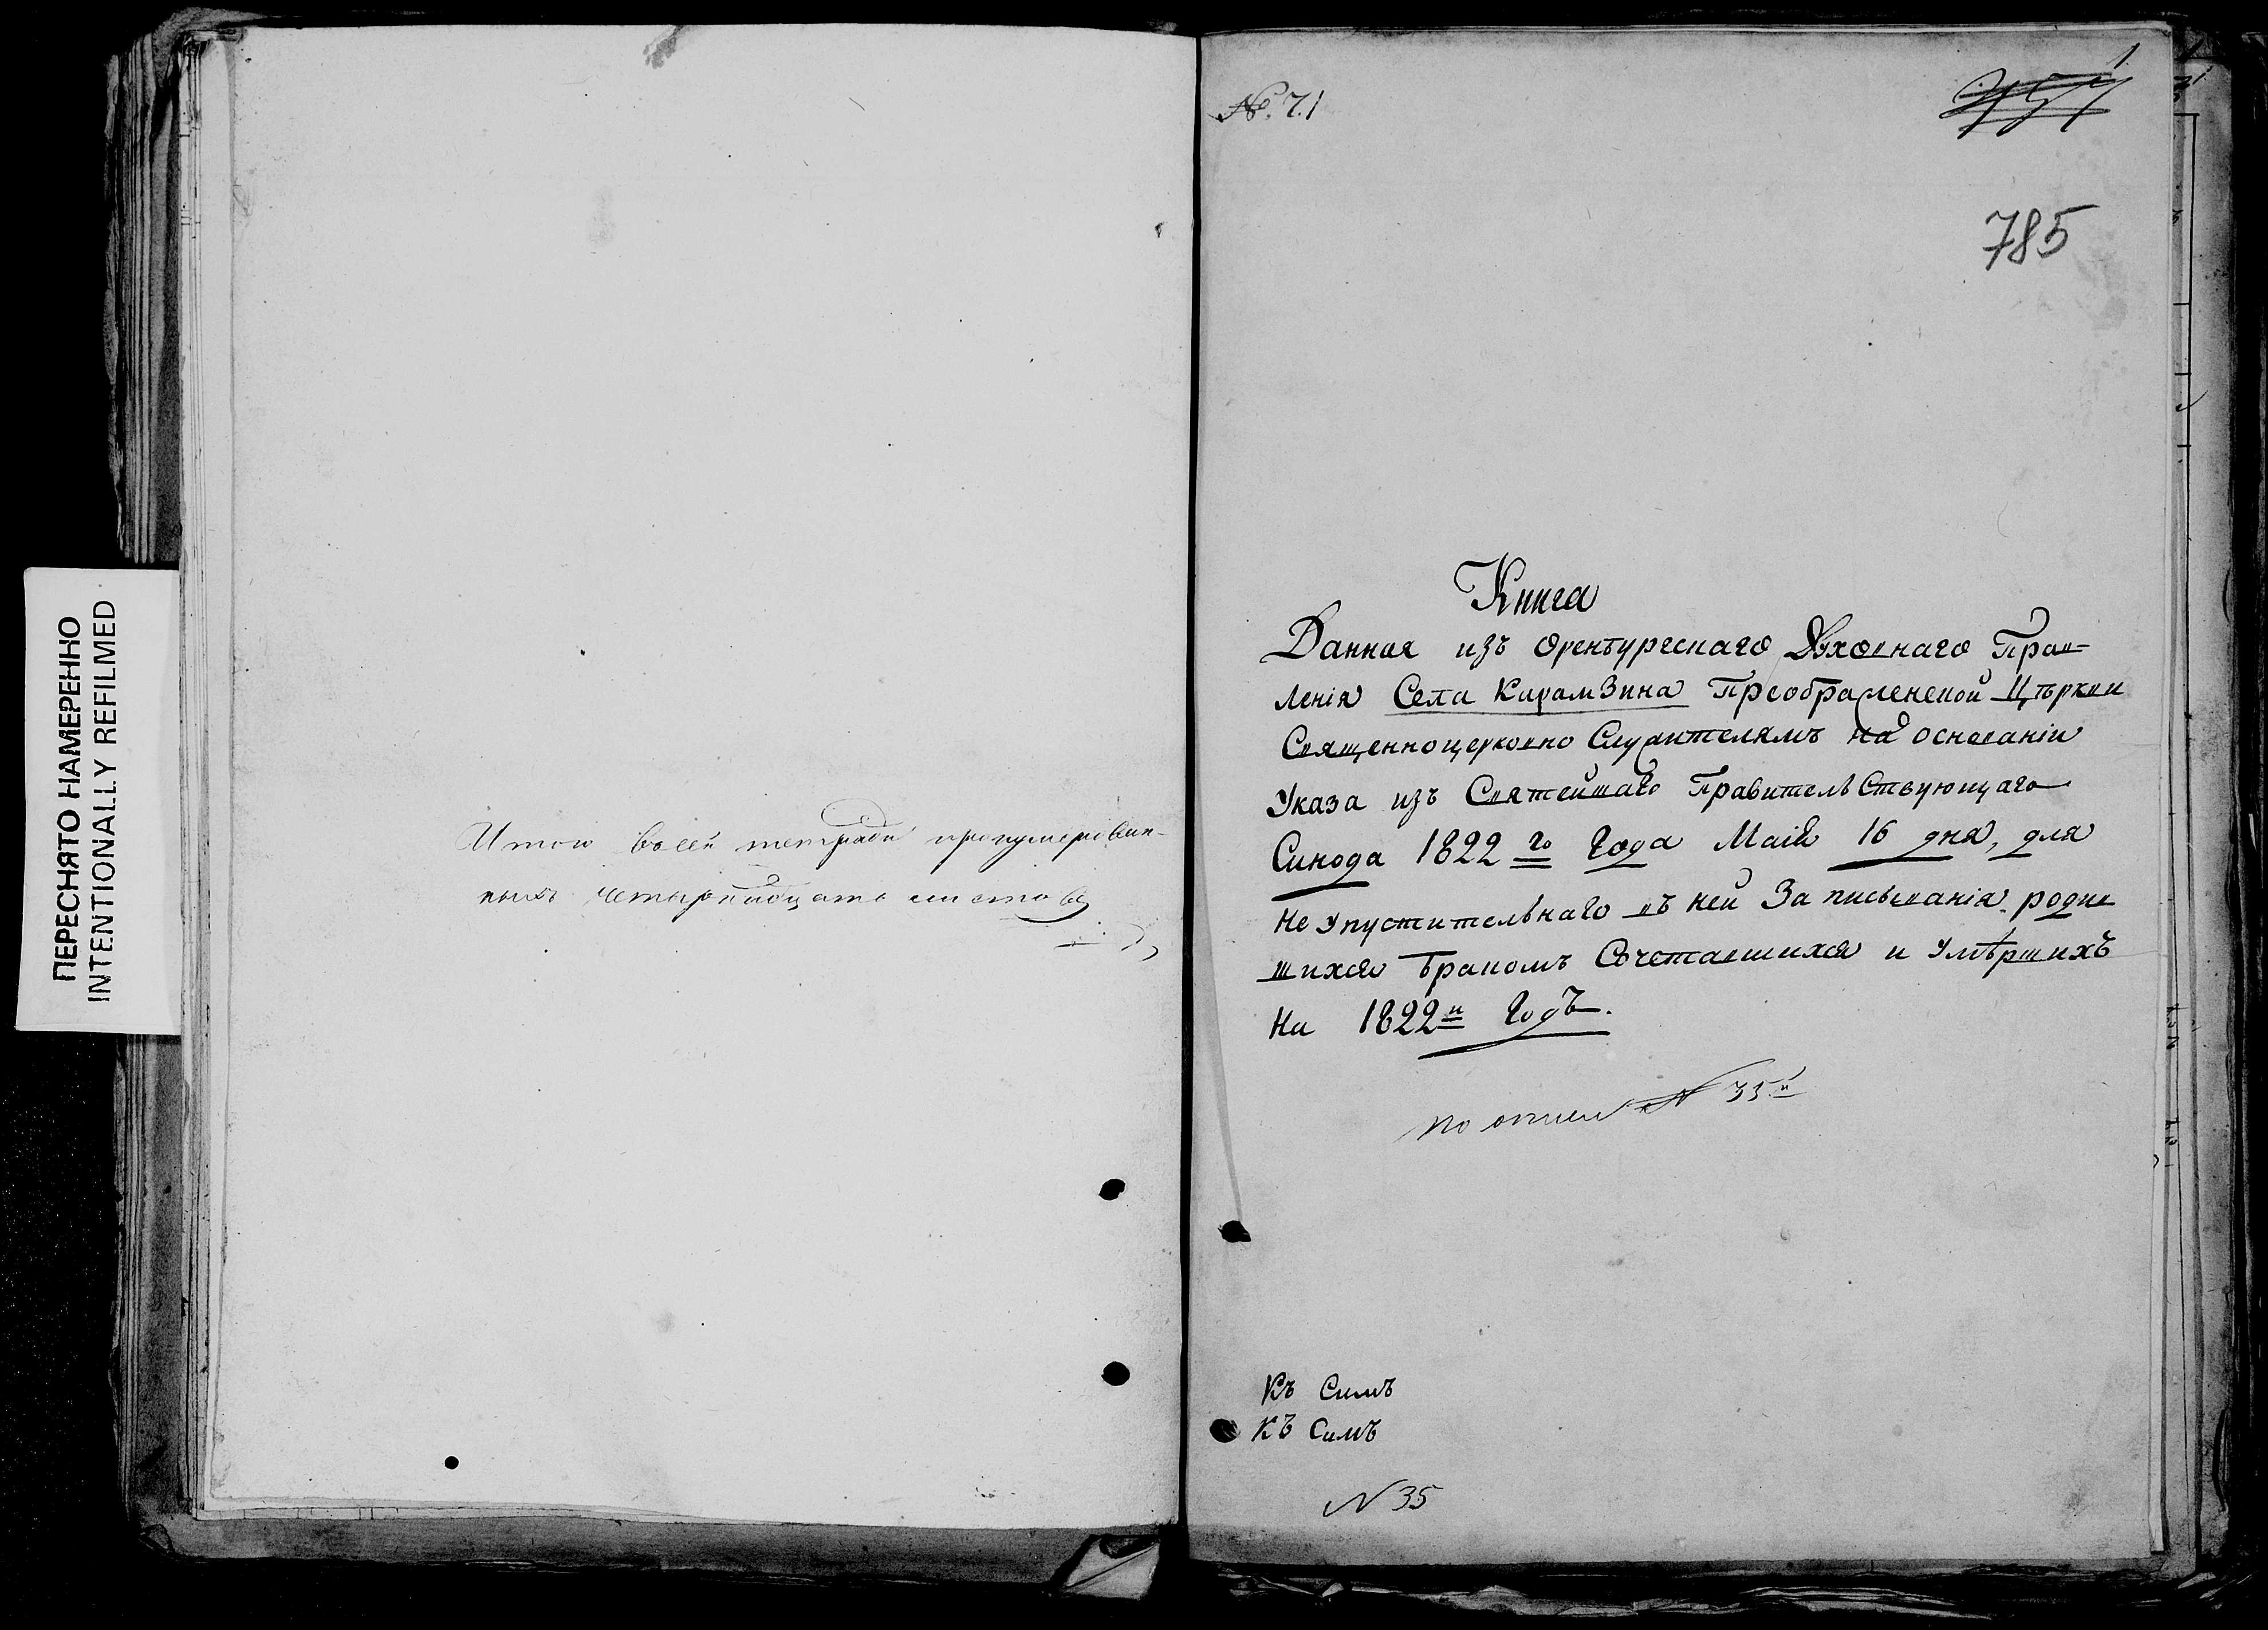 ПЕРЕСНЯТО НАМЕРЕННО
INTENTIONALLY REFILMED
Итого в сей тетради пронумерован-
ныхъ четырнадцать листовъ
№. 71
1
785
Книга
Данная изъ Оренбургскаго Духовнаго Прав-
ленія Села Карамзина Преображенской Цѣркви
Священноцерковно Служителямъ на основаніи
Указа изъ Святейшаго ПравительСтвующаго
Синода 1822 го Года Маія 16 дня, для
Не упустительнаго въ ней Записыванія родив
шихся бракомъ Сочетавшихся и Умѣршихъ
На 1822й Годъ.
по описи № 35й
Къ Симъ
Къ Симъ
N 35